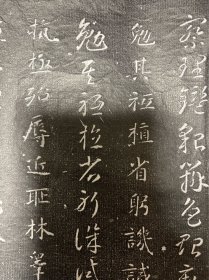 察理鑒貌辨色貽
勉其祗植省躬譏誡
勉其祗植省躬譏誡
抗極殆辱近耻林皋